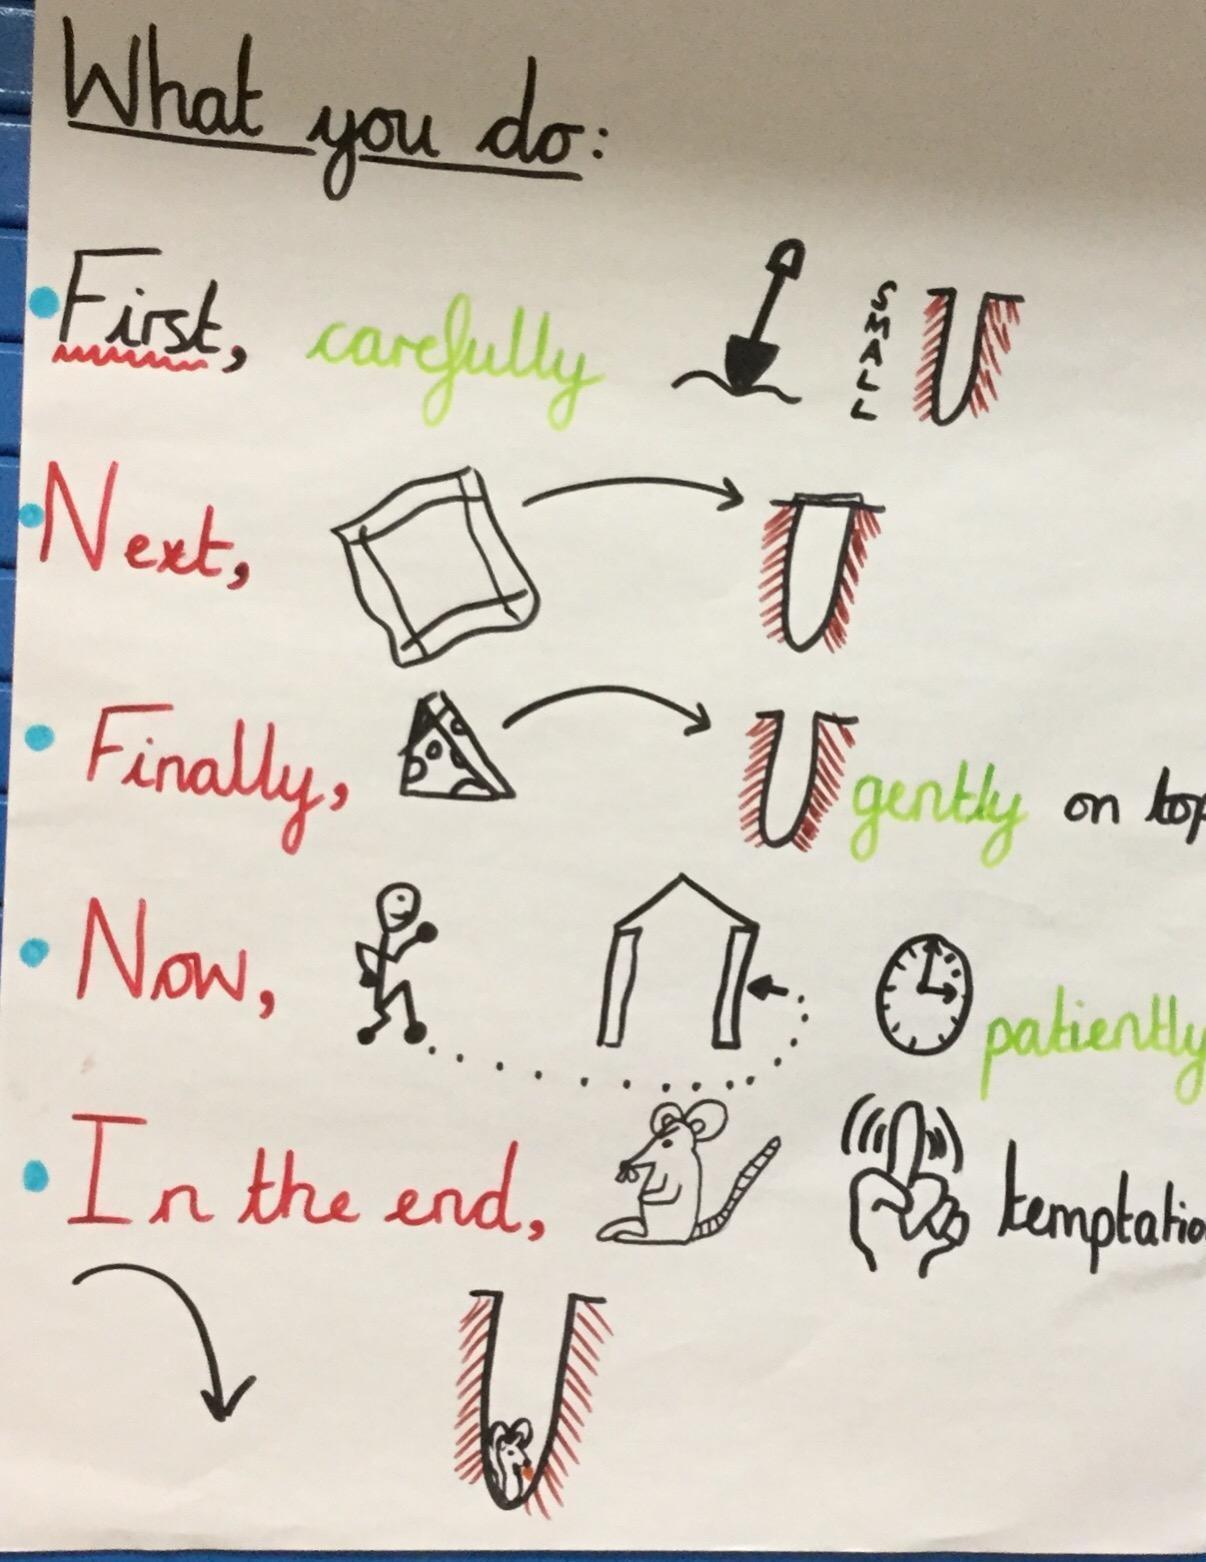 What you do:
First, carefully SMALL
Next,
Finally, gently on top
Now, patiently
In the end, temptatio